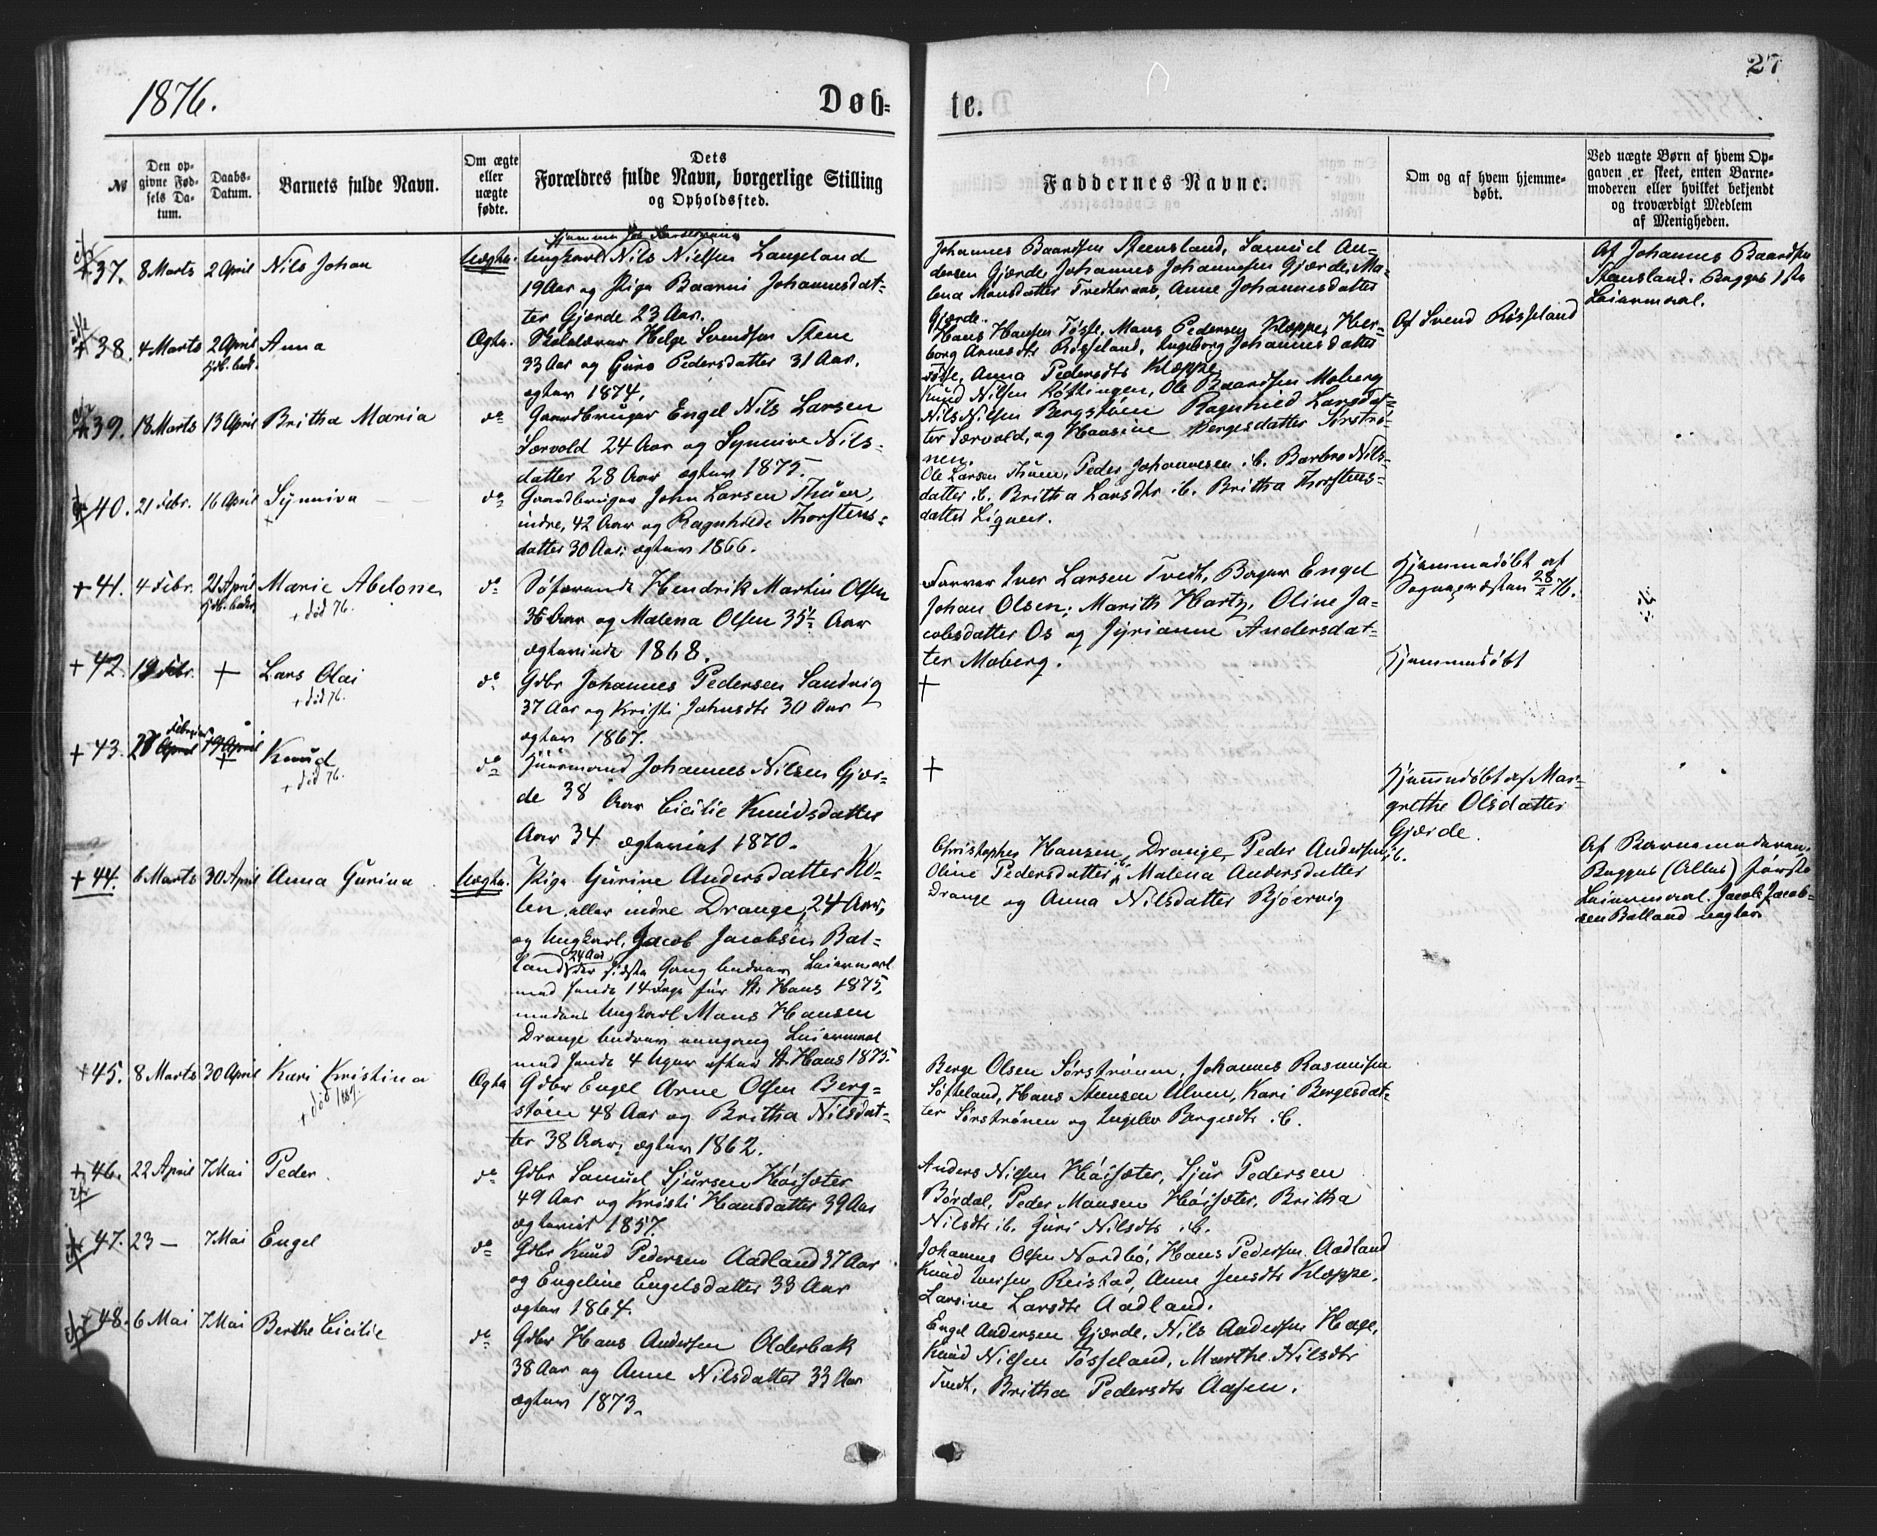 1876.
Døb-
te.
27
№
Den op-
givne Fød-
sels Da-
tum.
Daabs-
Datum.
Barnets fulde Navn.
Om ægte
eller
uægte
fødte.
Dets
Forældres fulde Navn, borgerlige Stilling
og Opholdssted.
Faddernes Navne.
Om og af hvem hjemme-
døbt.
Ved uægte Børn af hvem Op-
gaven er skeet, enten Barne-
moderen eller hvilket bekjendt
og troværdigt Medlem
af Menigheden.
+ 37. 8 Marts 2 April Nils Johan Uægte.
Ungkarl Nils Nielsen Langeland
19 Aar og Pige Baarni Johannesdat-
ter Gjerde 23 Aar.
Johannes Baardsen Steensland, Samuel An-
dersen Gjerde, Johannes Johannesen Gjerde, Ma-
lena Monsdatter Tvedteraas, Anne Johannesdatter
Gjerde.
Af Johannes Baardsen
Stensland. Begges 1ste
Leiermaal.
+ 38. 4 Marts 2 April Anna Ægte.
Skolelærer Helge Svendsen Stene
33 Aar og Guro Pedersdatter 31 Aar.
egtev 1874.
Hans Hansen Tøsse, Mons Pedersen Kleppe, Her-
borg Arnesdtr Røsseland, Ingeborg Johannesdatter
Tøsse, Anna Pedersdtr Kleppe
Af Svend Røsseland
39. 18 Marts 13 April Britha Maria do
Gaardbruger Engel Nils Larsen
Særvold 24 Aar og Synnive Nils-
datter 28 Aar egtev 1875.
Knud Nilsen Løftingen, Ole Baardsen Moberg
Nils Nilsen Bergstøen Ragnhild Larsdat-
ter Særvold, og Hansine Bergesdatter Sørstrø-
nen.
40. 21 Febr. 16 April Synniva do
Gaardbruger John Larsen Thuen,
indre, 42 Aar og Ragnhilde Thorstens-
datter 30 Aar. egtev 1866.
Ole Larsen Thuen, Peder Johannesen ib. Barbro Nils-
datter ib. Britha Larsdtr ib. Britha Thorstens-
datter Ligner.
+ 41. 4 Febr. 21 April Marie Abelone do
+ død 76.
Søfarende Hendrik Martin Olsen
36 Aar og Malena Olsen 35½ Aar
egteviede 1868.
Farver Iver Larsen Tvedt, Bager Engel
Johan Olsen, Marith Hartz, Oline Ja-
cobsdatter Os og Jyrianne Andersdat-
ter Moberg.
Hjemmedøbt af
Sognepræsten 28/2 76.
+ 42. 19 Febr. + Lars Olai do
+ død 76.
Gdbr Johannes Pedersen Sandvig
37 Aar og Kristi Johnsdtr 30 Aar
egtev 1867.
+
Hjemmedøbt
+ 43. 28 Februar 19 April + Knud do
+ død 76.
Huusmand Johannes Nilsen Gjer-
de 38 Aar Cicilie Knudsdatter
Aar 34 egteviet 1870.
+
Hjemmedøbt af Mar-
grethe Olsdatter
Gjerde.
+ 44. 6 Marts 30 April Anna Gurina Uægte.
Pige Gurine Andersdatter Ko-
len eller indre Drange, 24 Aar,
og Ungkarl Jacob Jacobsen Bal-
land 24 Aar der sidste Gang bedrev Leiermaal
med hende 14 Dage før St. Hans 1875,
medens Ungkarl Mons Hansen
Drange bedrev eengang Leiermaal
med hende 4 Uger efter St. Hans 1875
Christopher Hansen Drange, Peder Andersen ib.
Oline Pedersdatter ib. Malena Andersdatter
Drange og Anna Nilsdatter Bjørvig
Af Barnemoderen.
Begges (Alles) første
Leiermaal. Jacob Jacob-
sen Balland negter
+ 45. 8 Marts 30 April Kari Kristina Ægte
+ død 1887.
Gdbr Engel Arne Olsen Berg-
støen 48 Aar og Britha Nilsdat-
ter 38 Aar, egtev 1862.
Berge Olsen Sørstrønen, Johannes Rasmusen
Søfteland, Hans Steensen Ulven, Kari Bergesdat-
ter Sørstrønen og Ingebor Bergesdtr ib.
+ 46. 22 April 7 Mai Peder. do
Gdbr Samuel Sjursen Høisæter
49 Aar og Kristi Hansdatter 39 Aar
egteviet 1857.
Anders Nilsen Høisæter, Sjur Pedersen
Børdal, Peder Monsen Høisæter, Britha
Nilsdtr ib. Guri Nilsdtr ib.
47. 23 — 7 Mai Engel do
Gdbr Knud Pedersen Aadland 37 Aar
og Engeline Engelsdatter 33 Aar
egtev 1864.
Johannes Olsen Nordbø, Hans Pedersen Aadland
Knud Iversen Reistad, Anne Jensdtr Kleppe,
Larsine Larsdtr Aadland.
48. 6 Mai 7 Mai Berthe Cicilie do
Gdbr Hans Andersen Olderbak
38 Aar og Anne Nilsdatter 33 Aar
egtev 1873.
Engel Andersen Gjerde, Nils Andersen Hage,
Knud Nilsen Tøsseland, Marthe Nilsdtr
Tvedt, Britha Pedersdtr Aasen.